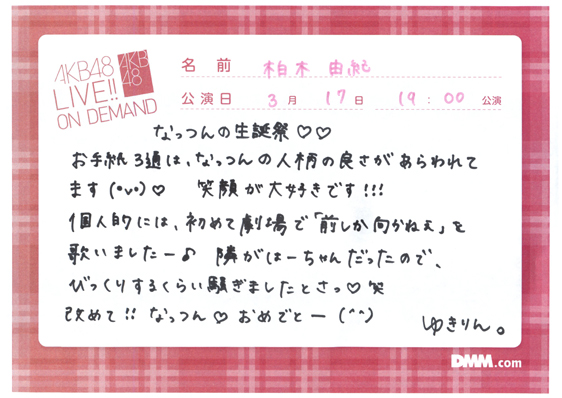 AKB48
LIVE!!
ON DEMAND
AKB
48
名前 柏木 由紀
公演日 3月 17日 19:00 公演
なっつんの生誕祭♡♡
お手紙3通は、なっつんの人柄の良さがあらわれて
ます(•v•)♡ 笑顔が大好きです!!!
個人的には、初めて劇場で「前しか向かねぇ」を
歌いましたー♪ 隣がはーちゃんだったので、
びっくりするくらい騒ぎましたとさっ♡笑
改めて!! なっつん♡おめでとー(^^)
ゆきりん。
DMM.com